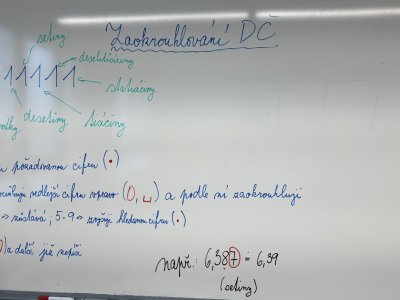 Zaokrouhlování DČ
setiny
desetitisíciny
1 1 1 1 1
stotisíciny
desetiny
tisíciny
požadovanou cifru (•)
vedlejší cifru vpravo (O, ␣) a podle ní zaokrouhluji
=> zůstává; 5-9 => zvyšuji hledanou cifru (•)
a další již nepíši
např.: 6,387 ≐ 6,39
(setiny)